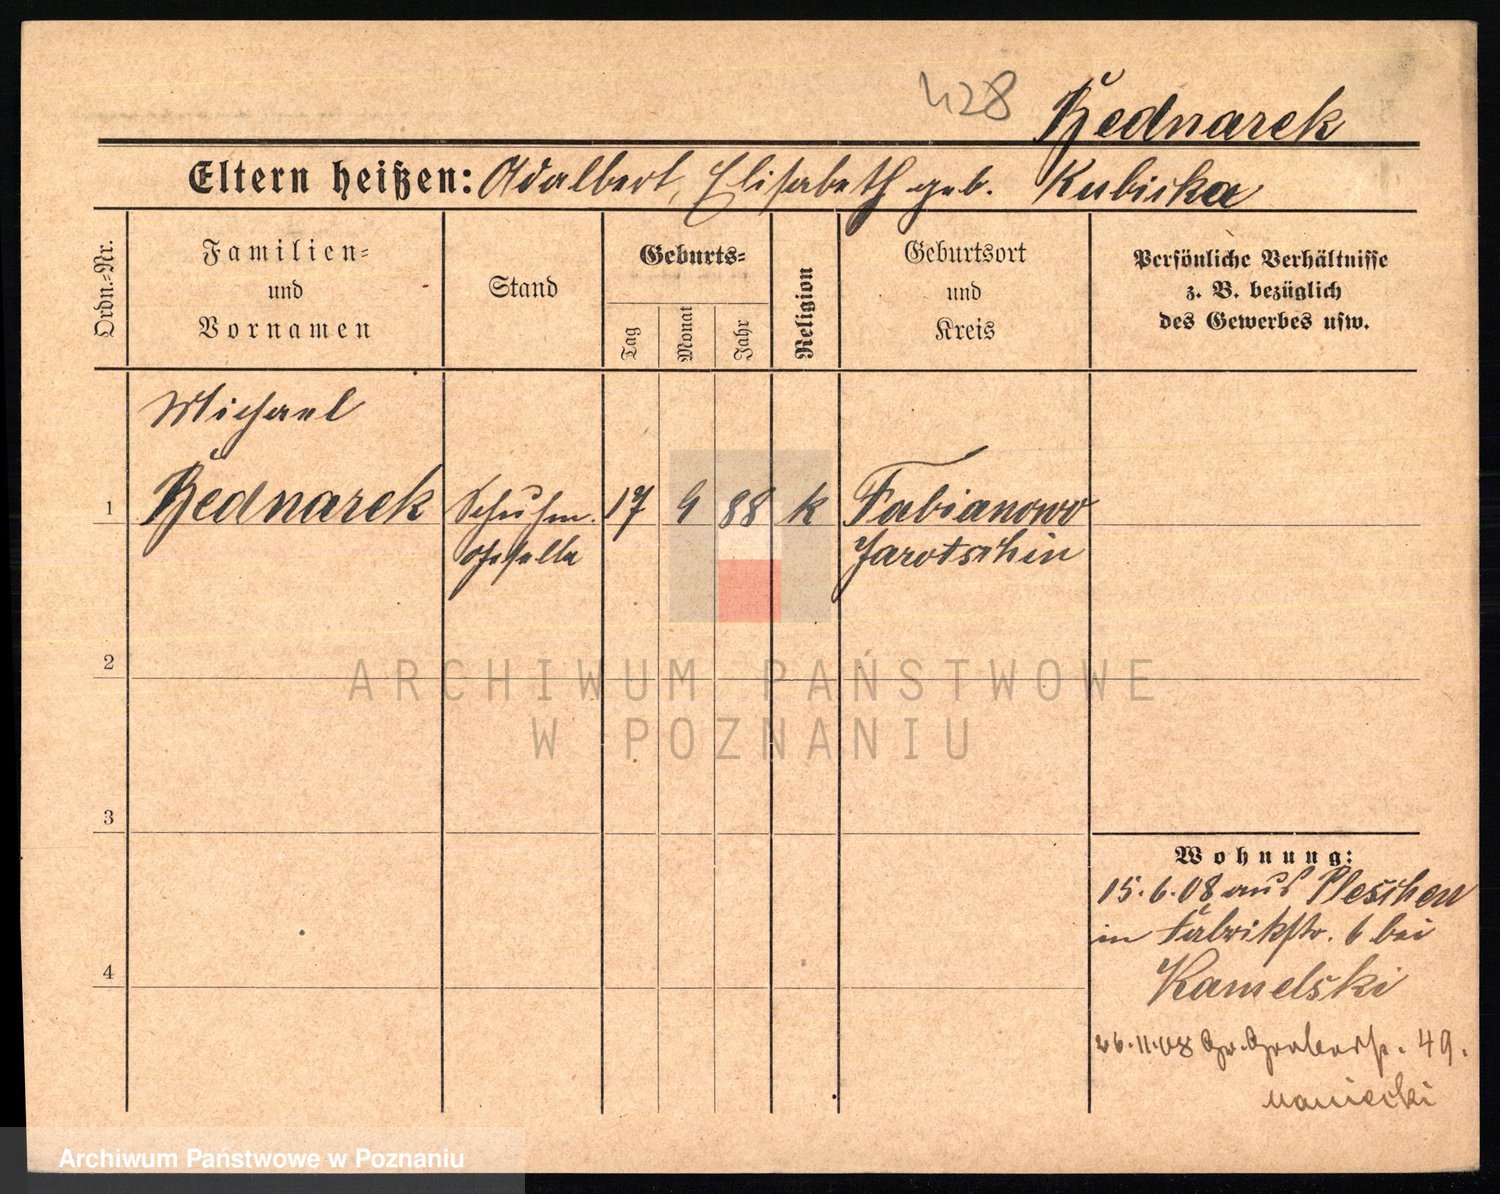 428 Bednarek
Eltern heißen: Adalbert, Elisabeth geb. Kubicka
Ordn.-Nr.
Familien-
und
Vornamen
Stand
Geburts-
Tag
Monat
Jahr
Religion
Geburtsort
und
Kreis
Persönliche Verhältnisse
z. B. bezüglich
des Gewerbes usw.
Michael
1 Bednarek Schuhm. 17 9 88 k Fabianowo
geselle Jarotschin
2
ARCHIWUM PAŃSTWOWE
W POZNANIU
3
4
Wohnung:
15.6.08 aus Pleschen
in Fabrikstr. 6 bei
Kamelski
26.11.08 Gr. Gerberstr. 49.
Maniecki
Archiwum Państwowe w Poznaniu